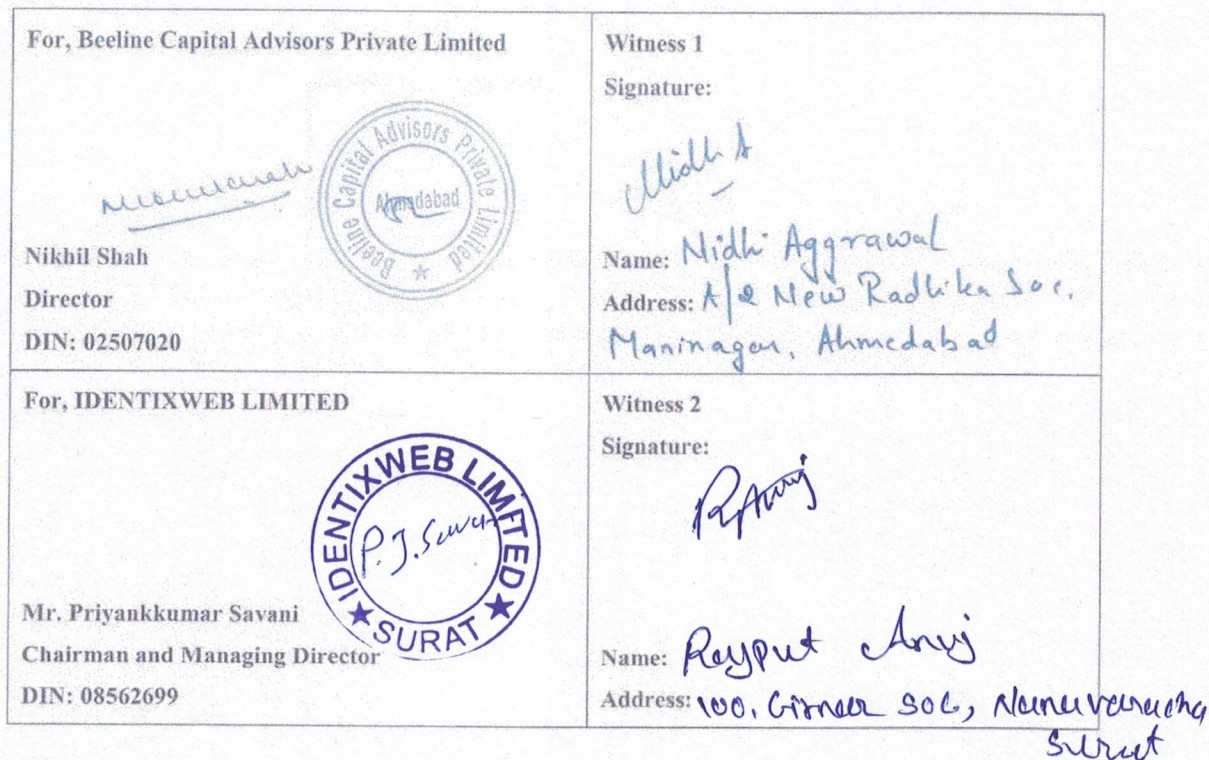 For, Beeline Capital Advisors Private Limited
Beeline Capital Advisors Private Limited
Ahmedabad
Nikhil Shah
Director
DIN: 02507020
Witness 1
Signature:
Nidhi A
Name: Nidhi Aggrawal
Address: A/2 New Radhika Soc,
Maninagar, Ahmedabad
For, IDENTIXWEB LIMITED
IDENTIXWEB LIMITED
P.J.Savani
SURAT
Mr. Priyankkumar Savani
Chairman and Managing Director
DIN: 08562699
Witness 2
Signature:
RAnuj
Name: Rajput Anuj
Address: 100, Girnar Soc, Nanavaracha
Surat